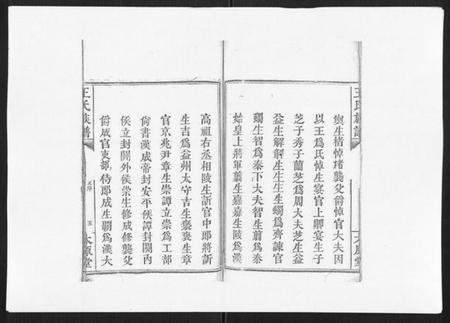 王氏族譜
與生楷悼楷襲父爵悼官大夫因
以王爲氏悼生宴官上卿宴生子
芝子秀子蘭芝爲周大夫芝生益
益生解解生生生生蠲爲齊諫官
蠲生智爲秦下大夫智生翦爲秦
始皇上將軍翦生嘉嘉生陵爲漢
高祖右丞相陵生訢官中郎將訢
生吉爲益州大守吉生褒褒生章
官京兆尹章生崇譚立崇爲工部
尚書漢成帝封安平侯譚封關內
侯立封關外侯崇生修咸修襲父
爵咸官吏部侍郎咸生覇爲漢大
王氏族譜
五
太原堂